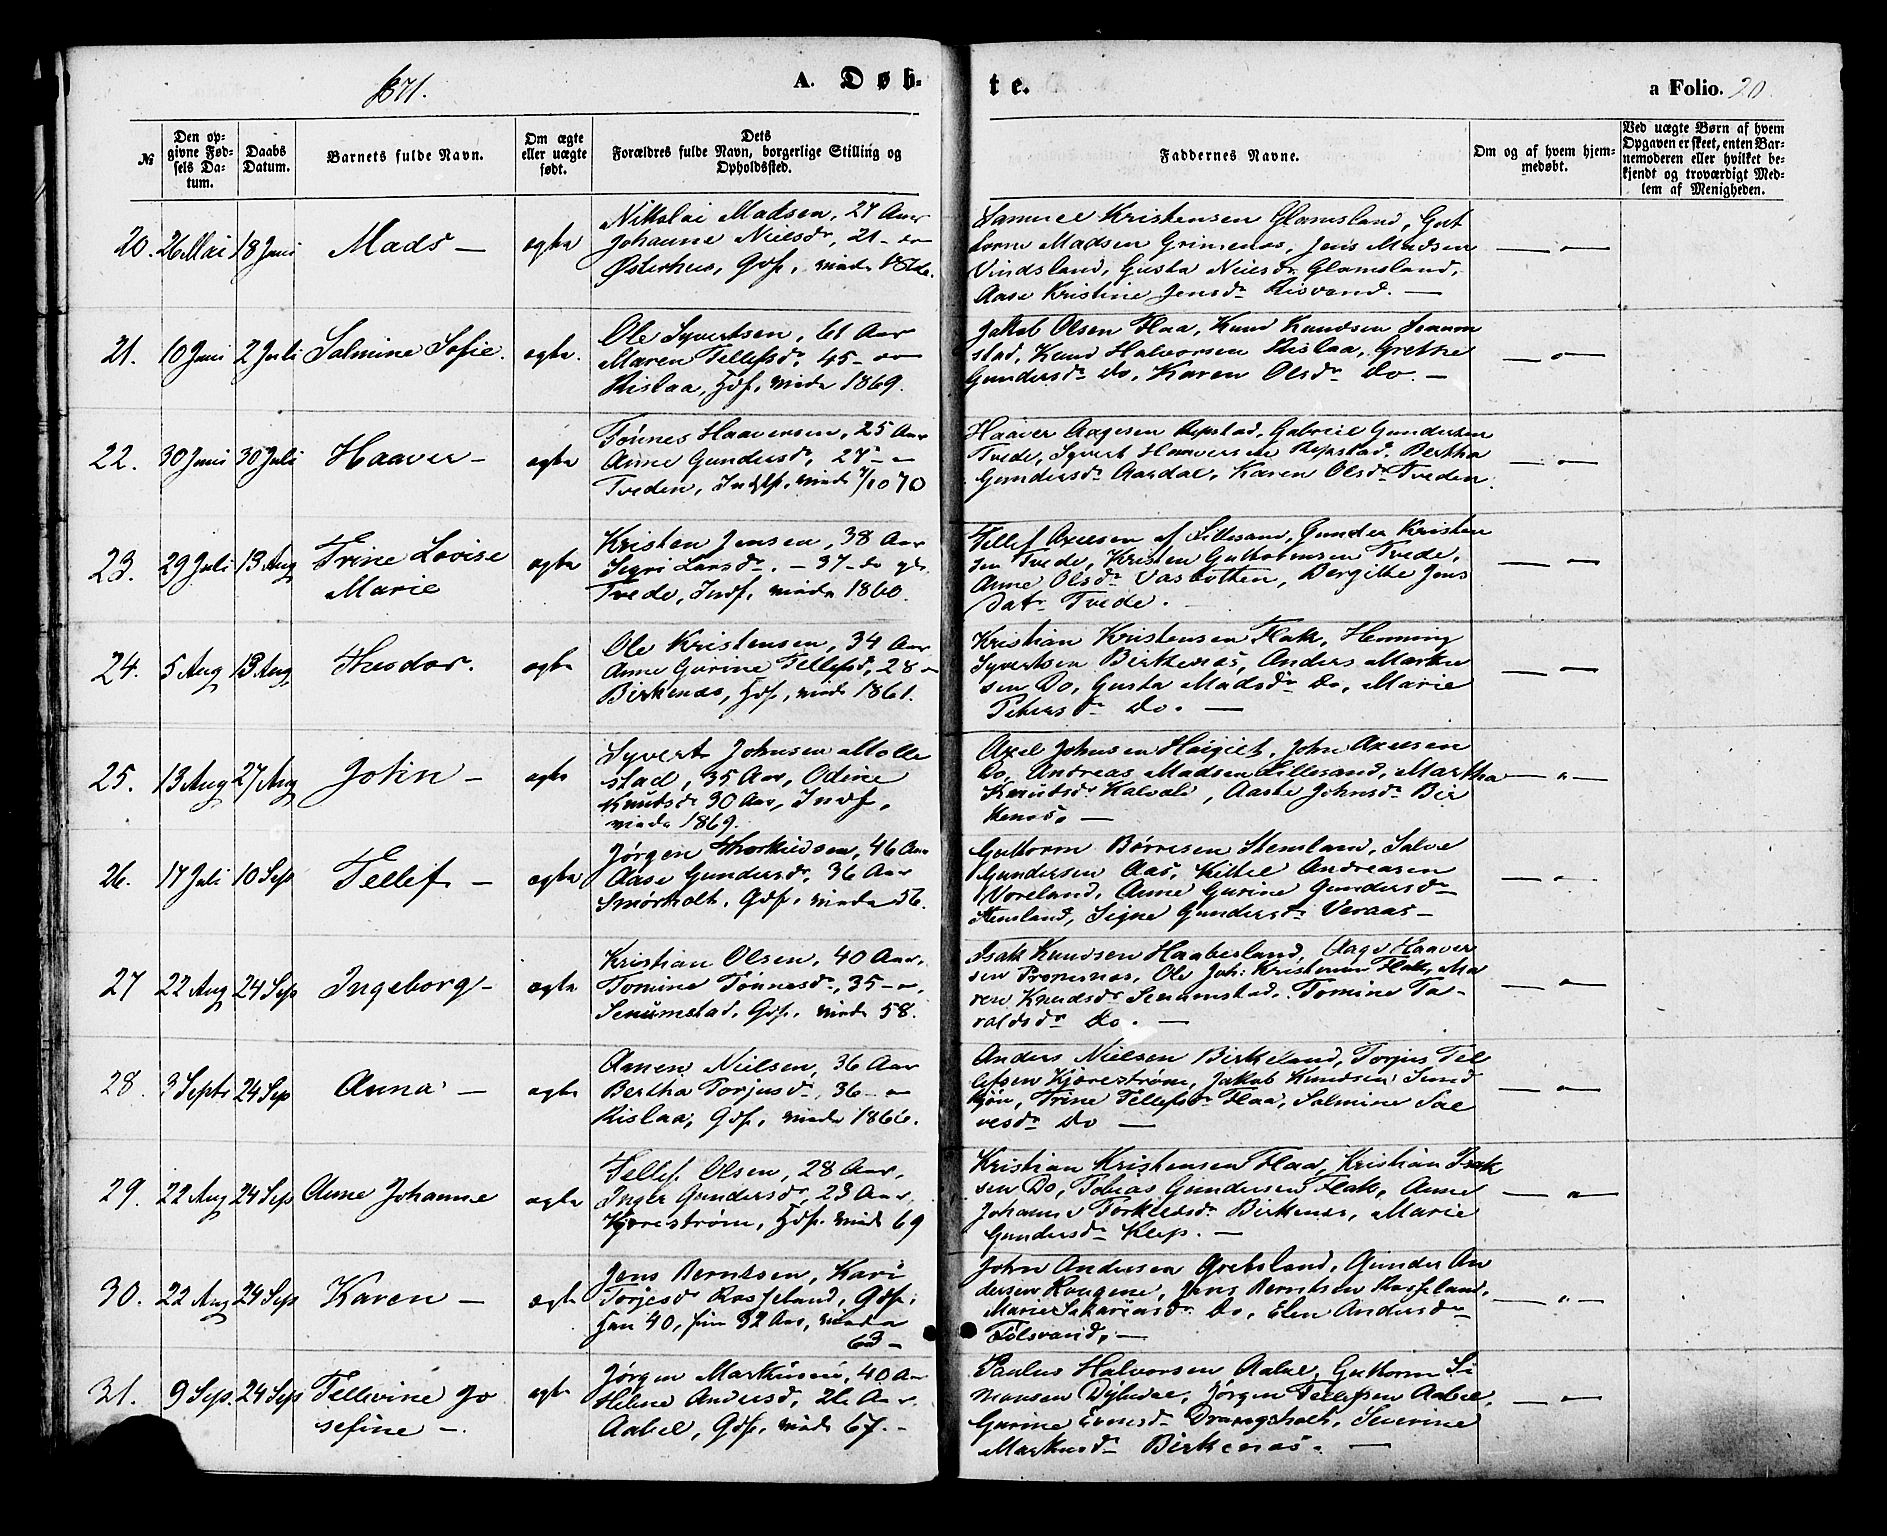 1871.
A. Døb-
te.
a Folio. 20.
№
Den op-
givne Fød-
sels Da-
tum.
Daabs
Datum.
Barnets fulde Navn.
Om ægte
eller uægte
født.
Dets
Forældres fulde Navn, borgerlige Stilling og
Opholdssted.
Faddernes Navne.
Om og af hvem hjem-
medøbt.
Ved uægte Børn af hvem
Opgaven er skeet, enten Bar-
nemoderen eller hvilket be-
kjendt og troværdigt Med-
lem af Menigheden.
20. 26 Mai 18 Juni Mads — ægte
Nikolai Madsen, 27 Aar
Johanne Nielsdr, 21 - do
Østerhus, Gdf,
Samuel Kristensen Glamsland, Gut
torm Madsen Grimenæs, Jens Madsen
Vindsland, Gusta Nielsdr Glamsland,
Aase Kristine Jensdr Risvand. —
— " —
21. 10 Juni 2 Juli Salmine Sofie. ægte.
Ole Syvertsen, 61 Aar
Maren Tellefsdr, 45 - do
Rislaa, Hdf, viede 1869.
Jakob Olsen Flaa, Knud Knudsen Senum
stad, Knud Halvorsen Rislaa, Grethe
Gundersdr Do, Karen Olsdr Do. —
— " —
22. 30 Juni 30 Juli Haaver — ægte
Tønnes Haaversen, 25 Aar
Anne Gundersdr, 27 - "
Tveden, Indf, viede 7/10 70
Haaver Aagesen Repstad, Gabriel Gundersen
Tvede, Syvert Haaversen Repstad, Bertha
Gundersdr Aardal, Karen Olsdr Tveden.
— " —
23. 29 Juli 13 Aug Trine Lovise
Marie
ægte
Kristen Jensen, 38 Aar
Sigri Larsdr. - 37 - do
Tvede, Indf, viede 1860.
Tellef Axelsen af Lillesand, Gunder Kristen
sen Tvede, Kristen Guttormsen Tvede,
Anne Olsdr Vasbotten, Bergithe Jens
datr Tvede. —
— " —
24. 5 Aug 13 Aug Theodor. ægte
Ole Kristensen, 34 Aar
Anne Gurine Tellefsd, 28 "
Birkenæs, Hdf, viede 1861.
Kristian Kristensen Flak, Henning
Syvertsen Birkenæs, Anders Marku
sen Do, Gusta Madsdr Do, Marie
Petersdr Do. —
— " —
25. 13 Aug 27 Aug John — ægte
Syvert Johnsen Molle
stad, 35 Aar, Odine
Knudsdr 30 Aar, Indf,
viede 1869.
Axel Johnsen Høigilt, John Axelsen
Do, Andreas Madsen Lillesand, Martha
Knudsdr Kalvali, Aaste Johnsdr Bir
kenæs. —
— " —
26. 17 Juli 10 Sep Tellef — ægte
Jørgen Thorkildsen, 46 Aar
Aase Gundersdr, 36 Aar
Smørholt, Gdf, viede 56.
Guttorm Børresen Stensland, Salve
Gundersen Aas, Kittel Andreasen
Voreland, Anne Gurine Gundersdr
Stensland, Signe Gundersdr Veraas —
— " —
27 22 Aug 24 Sep Ingeborg — ægte
Kristian Olsen, 40 Aar,
Tomine Tønnesdr, 35 - ",
Senumstad, Gdf, viede 58.
Isak Knudsen Haabesland, Aage Haaver
sen, Ole Joh: Kristensen Flak, Ma
ren Knudsdr Senumstad, Tomine Ta-
raldsdr Do. —
— " —
28. 3 Septr 24 Sep Anna — ægte
Nielsen, 36 Aar
Bertha Torjusdr, 36 - "
Rislaa, Gdf, viede 1866.
Anders Nielsen Birkeland, Torjus Tel
lefsen Kjørestrøm, Jakob Knudsen Sund
tjøn, Trine Tellefsdr Flaa, Salmine Sal
vesdr Do —
— " —
29. 22 Aug 24 Sep Anne Johanne ægte
Tellef Olsen, 28 Aar,
Inger Gundersdr, 23 Aar,
Kjørestrøm, Hdf. viede 69
Kristian Kristensen Flaa, Kristian Isak
sen Do, Tobias Gundersen Flak, Anne
Johanne Torkildsdr Birkenæs, Marie
Gundersdr Klep. —
— " —
30. 22 Aug 24 Sep Karen — ægte
Jens Berntsen, Kari
Torjesdr Rosseland, Gdf;
han 40, hun 32 Aar, viede
63 —
John Andersen Gretsland, Gunder An
dersen Haugene, Jens Berntsen Rosseland,
Marie Sakariasdr Do, Elen Andersdr
Følsvand. —
— " —
31. 9 Sep. 24 Sep Tellevine Jo
sefine —.
ægte
Jørgen Markussen, 40 Aar
Helene Andersd, 26 Aar.
Aabel, Gdf, viede 67. —
Paulus Halvorsen Aabel, Guttorm Si
monsen Dybedal, Jørgen Tellefsen Aabel,
Gurine Evensdr Drangsholt, Severine
Markusdr Birkenæs. —
— " —